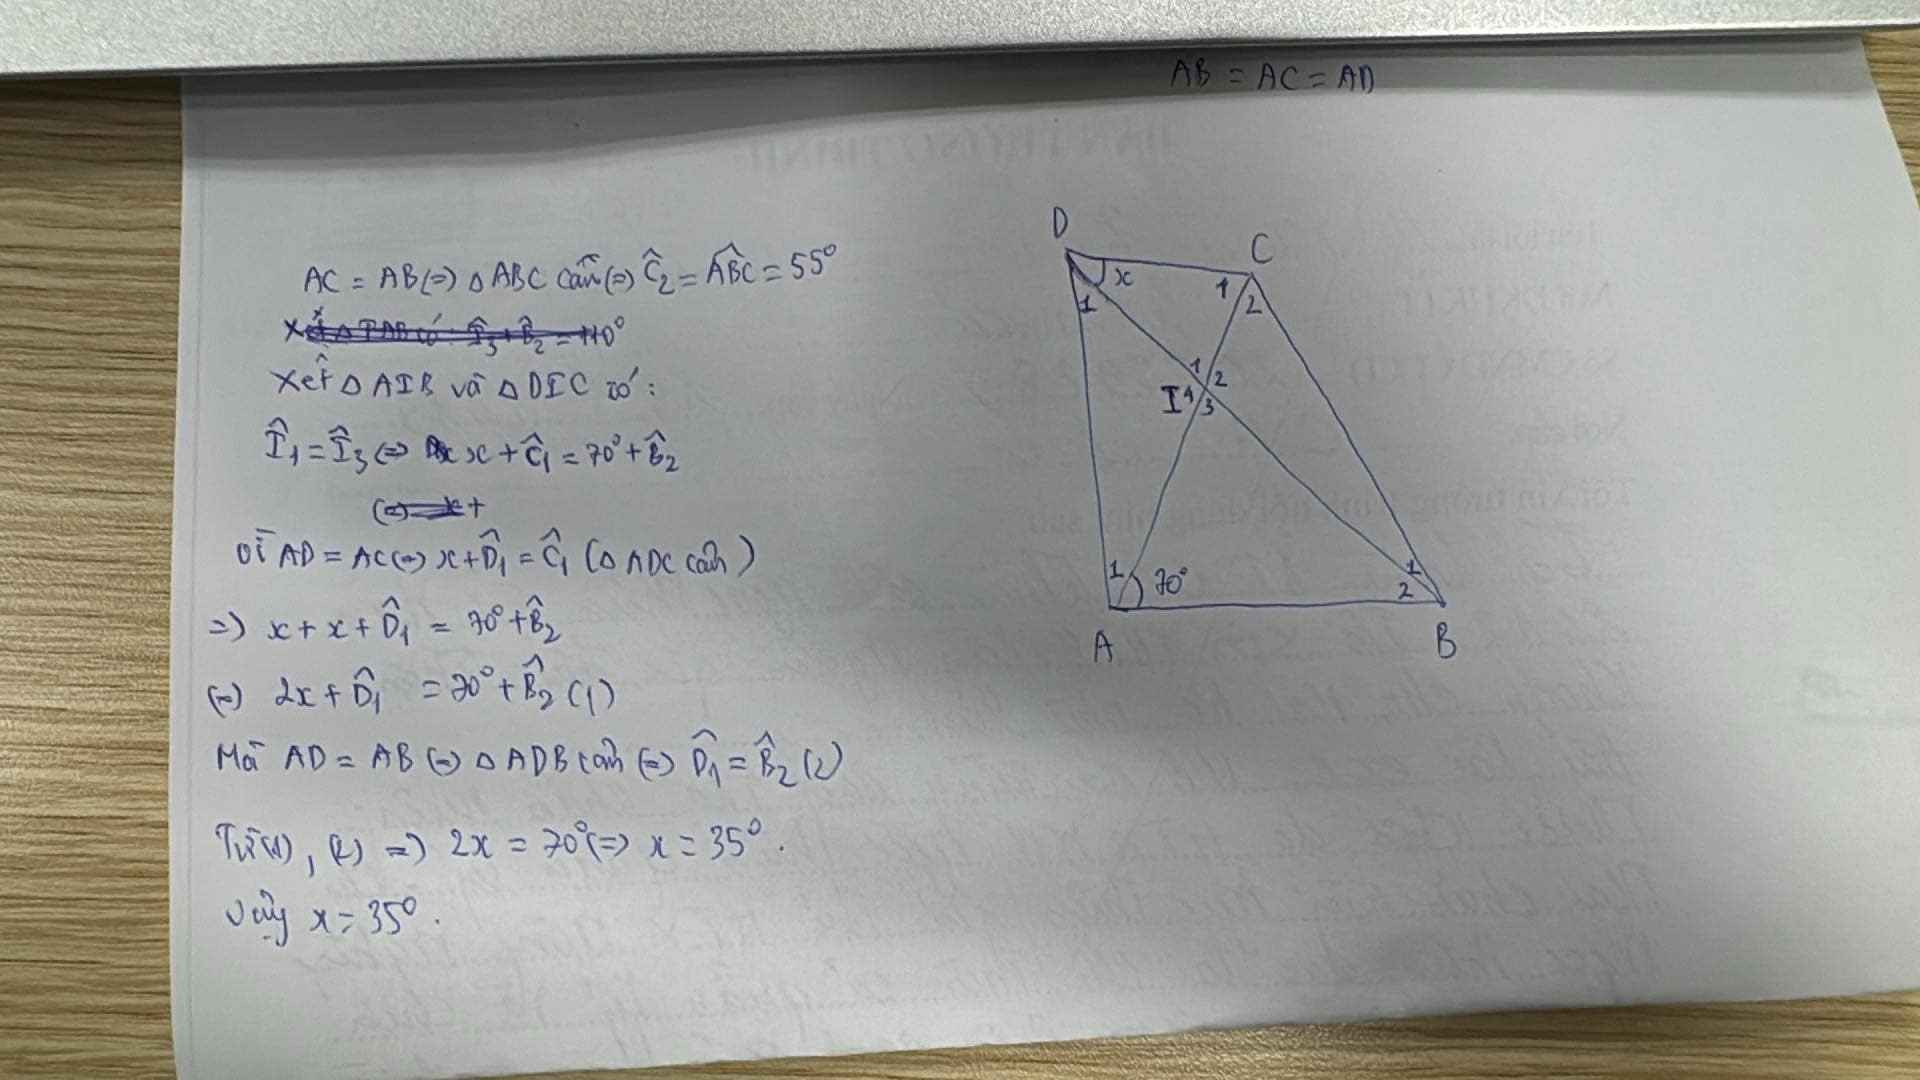 AB = AC = AD
AC = AB (=) Δ ABC cân (=) Ĉ₂ = ABC^ = 55°
Xét Δ IAB có: Î₃ + B̂₂ = 110°
Xét Δ AIB và Δ DIC có:
Î₁ = Î₃ (=) x + Ĉ₁ = 70° + B̂₂
(=) x +
Vì AD = AC (=) x + D̂₁ = Ĉ₁ (Δ ADC cân)
=) x + x + D̂₁ = 70° + B̂₂
(=) 2x + D̂₁ = 70° + B̂₂ (1)
Mà AD = AB (=) Δ ADB cân (=) D̂₁ = B̂₂ (2)
Từ (1), (2) =) 2x = 70° (=) x = 35°.
Vậy x = 35°.
D
C
x
1
1
2
1
2
I 4
3
1
70°
1
2
A
B